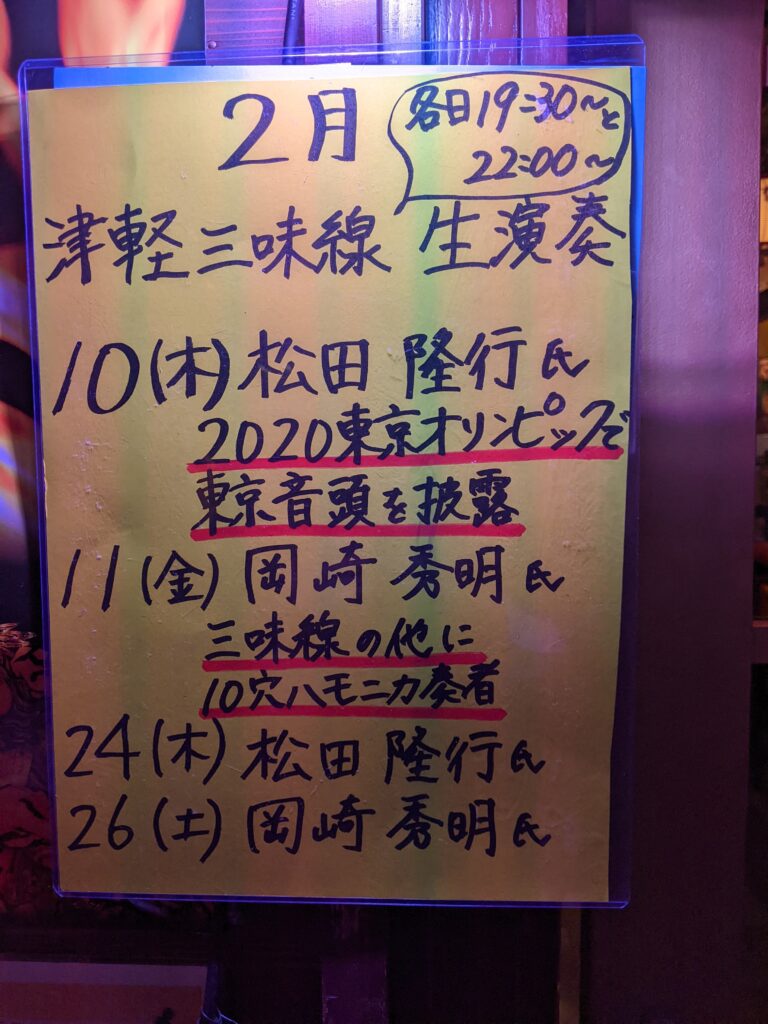 2月
各日19:30〜と
22:00〜
津軽三味線 生演奏
10(木)松田 隆行氏
2020東京オリンピックで
東京音頭を披露
11(金)岡崎 秀明氏
三味線の他に
10穴ハモニカ奏者
24(木)松田 隆行氏
26(土)岡崎 秀明氏